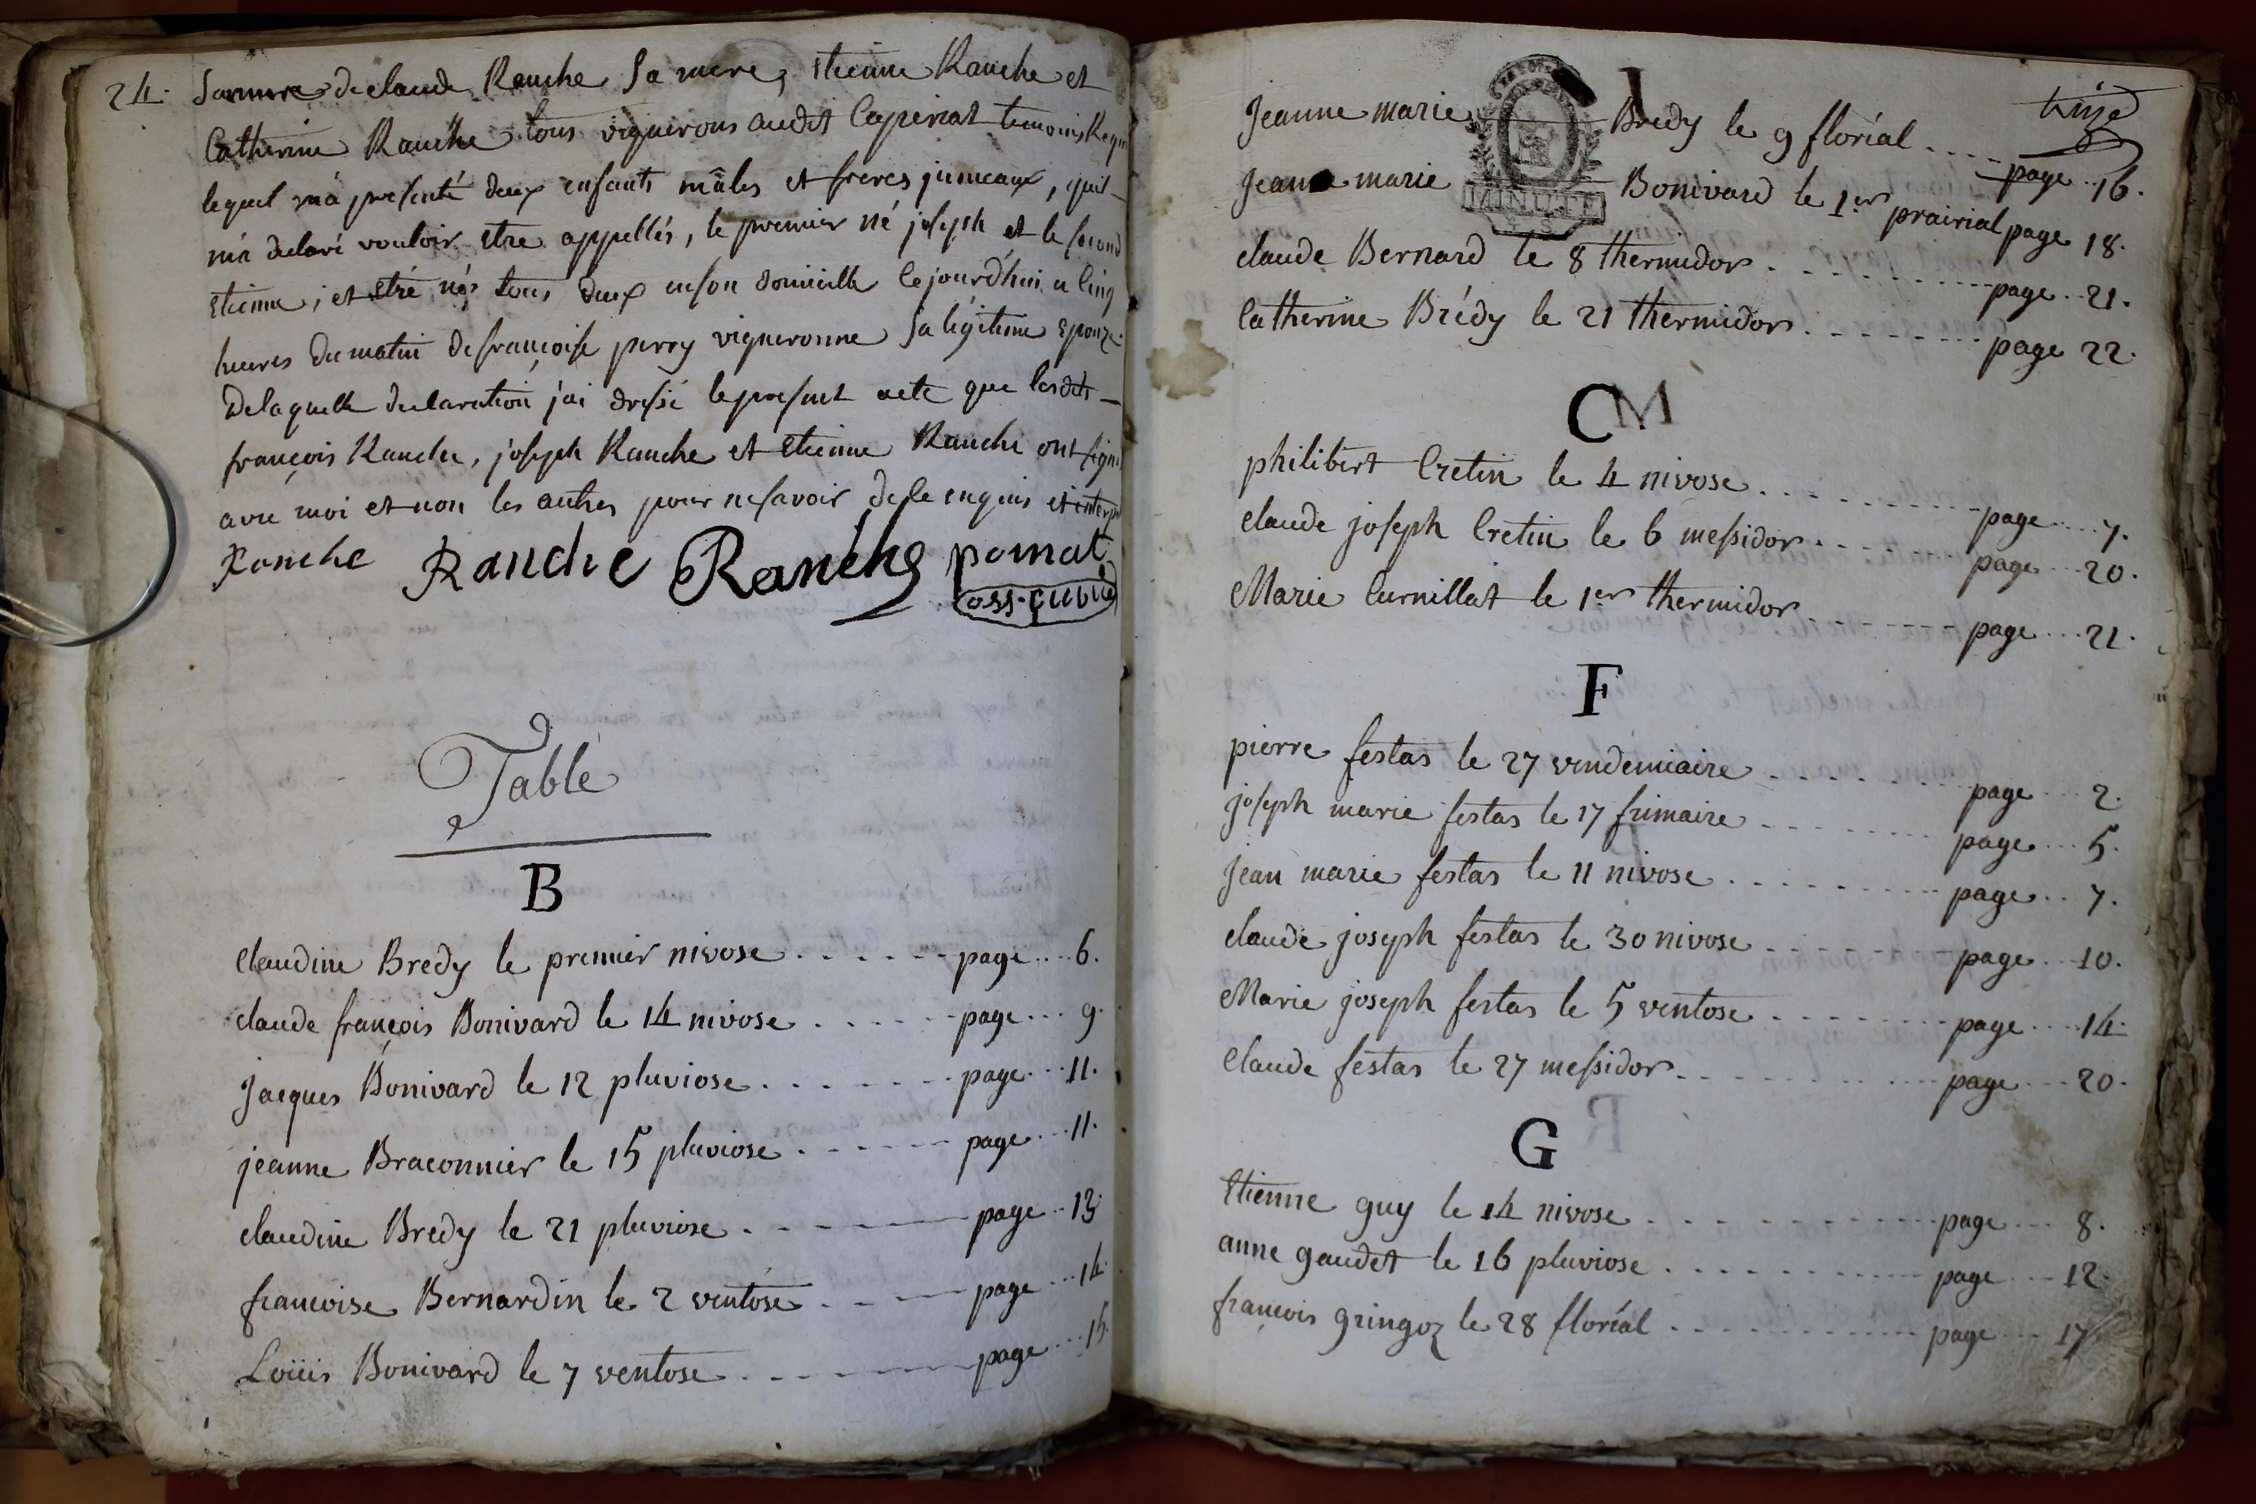 24.
de claude Ranche sa mere, étienne Ranche et
Catherine Ranche tous vignerons audit Ceyseriat temoins Requis
lequel m'a presenté deux enfants mâles et freres jumeaux, quil
m'a declaré vouloir etre appellés, le premier né joseph et le second
étienne, et etré nés tous deux en son domicille cejourd'hui a cinq
heures du matin de françoise perry vigneronne sa légitime Epouze
De laquelle declaration j'ai dressé le present acte que lesdits
françois Ranche, joseph Ranche et étienne Ranche ont signé
avec moi et non les autres pour ne savoir de ce enquis et
Ranche Ranche Ranche pomat
off. public
Table
B
Claudine Bredy le premier nivose ...... page .... 6.
claude françois Bonivard le 14 nivose ...... page ... 9.
Jacques Bonivard le 12 pluviose ....... page ... 11.
jeanne Braconnier le 15 pluviose ...... page ... 11.
claudine Bredy le 21 pluviose ...... page .. 13
francoise Bernardin le 2 ventose ..... page ... 14.
Loüis Bonivard le 7 ventose ...... page ... 15.
Jeanne marie Bredy le 9 floréal .... page .. 16.
Jean marie Bonivard le 1er prairial page 18.
MINUTE
claude Bernard le 8 thermidor ......... page .. 21.
Catherine Brédy le 21 thermidor ........ page 22.
C
philibert Cretin le 4 nivose .......... page .... 7.
Claude joseph Cretin le 6 messidor ....... page ... 20.
Marie Curnillat le 1er thermidor ....... page ... 21.
F
pierre festas le 27 vendemiaire ......... page ... 2.
joseph marie festas le 17 frimaire ........ page ... 5.
Jean marie festas le 11 nivose .......... page .. 7.
claude joseph festas le 30 nivose ........ page ... 10.
Marie joseph festas le 5 ventose ........ page .... 14.
Claude festas le 27 messidor .......... page ... 20.
G
Etienne guy le 14 nivose ............ page ... 8.
anne gaudet le 16 pluviose ........... page ... 12.
francois gringoz le 28 floréal ........... page ... 17